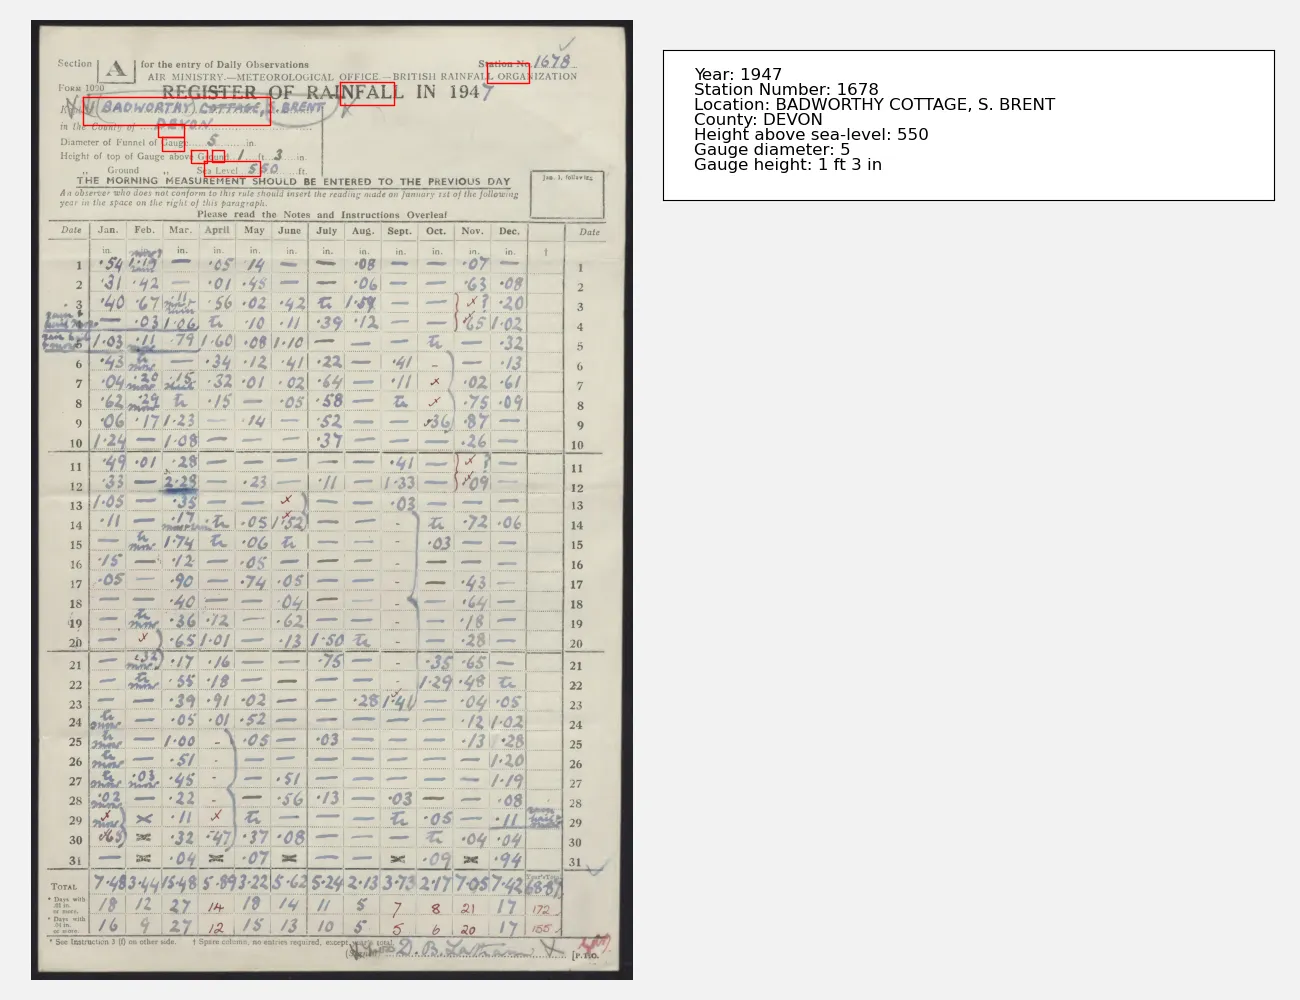 Section A for the entry of Daily Observations
Station No. 1678
AIR MINISTRY.—METEOROLOGICAL OFFICE.—BRITISH RAINFALL ORGANIZATION
Form 1090
REGISTER OF RAINFALL IN 1947
BADWORTHY COTTAGE, S. BRENT
in the County of DEVON
Diameter of Funnel of Gauge 5 in.
Height of top of Gauge above Ground 1 ft. 3 in.
„ Ground „ Sea Level 550 ft.
THE MORNING MEASUREMENT SHOULD BE ENTERED TO THE PREVIOUS DAY
An observer who does not conform to this rule should insert the reading made on January 1st of the following
year in the space on the right of this paragraph.
Jan. 1, following
Please read the Notes and Instructions Overleaf
Date Jan. Feb. Mar. April May June July Aug. Sept. Oct. Nov. Dec. Date
in. in. in. in. in. in. in. in. in. in. in. †
1 ·54 1·19 — ·05 ·14 — — ·08 — — ·07 — 1
2 ·31 ·42 — ·01 ·45 — — ·06 — — ·63 ·08 2
3 ·40 ·67 ·11 ·56 ·02 ·42 tr 1·59 — — x ? ·20 3
4 — ·03 1·06 tr ·10 ·11 ·39 ·12 — — ·65 1·02 4
5 1·03 ·11 ·79 1·60 ·08 1·10 — — — tr — ·32 5
6 ·43 tr snow — ·34 ·12 ·41 ·22 — ·41 - — ·13 6
7 ·04 ·20 snow ·15 ·32 ·01 ·02 ·64 — ·11 x ·02 ·61 7
8 ·62 ·29 snow tr ·15 — ·05 ·58 — tr x ·75 ·09 8
9 ·06 ·17 1·23 — ·14 — ·52 — — ·36 ·87 — 9
10 1·24 — 1·08 — — — ·37 — — — ·26 — 10
11 ·49 ·01 ·28 — — — — — ·41 — x ? — 11
12 ·33 — 2·28 — ·23 — ·11 — 1·33 — ·09 — 12
13 1·05 — ·35 — — x — — ·03 — — — 13
14 ·11 — ·17 tr ·05 1·52 — — - tr ·72 ·06 14
15 — tr snow 1·74 tr ·06 tr — — - ·03 — — 15
16 ·15 — ·12 — ·05 — — — - — — — 16
17 ·05 — ·90 — ·74 ·05 — — - — ·43 — 17
18 — — ·40 — — ·04 — — - — ·64 — 18
19 — tr snow ·36 ·12 — ·62 — — - — ·18 — 19
20 — x ·65 1·01 — ·13 1·50 tr - — ·28 — 20
21 — ·32 snow ·17 ·16 — — ·75 — - ·35 ·65 — 21
22 — tr snow ·55 ·18 — — — — - 1·29 ·48 tr 22
23 — — ·39 ·91 ·02 — — ·28 1·41 — ·04 ·05 23
24 tr snow — ·05 ·01 ·52 — — — — — ·12 1·02 24
25 tr snow — 1·00 - ·05 — ·03 — — — ·13 ·28 25
26 tr snow — ·51 - — — — — — — — 1·20 26
27 tr snow ·03 snow ·45 - — ·51 — — — — — 1·19 27
28 ·02 snow — ·22 - — ·56 ·13 — ·03 — — ·08 28
29 x snow x ·11 x tr — — — tr ·05 — ·11 29
30 x ·32 ·47 ·37 ·08 — — — tr ·04 ·04 30
31 — x ·04 x ·07 x — — x ·09 x ·94 31
Total 7·48 3·44 15·48 5·89 3·22 5·62 5·24 2·13 3·73 2·17 7·05 7·42 Year's Total 68·87
* Days with ·01 in. or more. 18 12 27 14 18 14 11 5 7 8 21 17 172
* Days with ·04 in. or more. 16 9 27 12 15 13 10 5 5 6 20 17 155
* See Instruction 3 (f) on other side. † Spare column, no entries required, except year's total.
[P.T.O.
Year: 1947
Station Number: 1678
Location: BADWORTHY COTTAGE, S. BRENT
County: DEVON
Height above sea-level: 550
Gauge diameter: 5
Gauge height: 1 ft 3 in